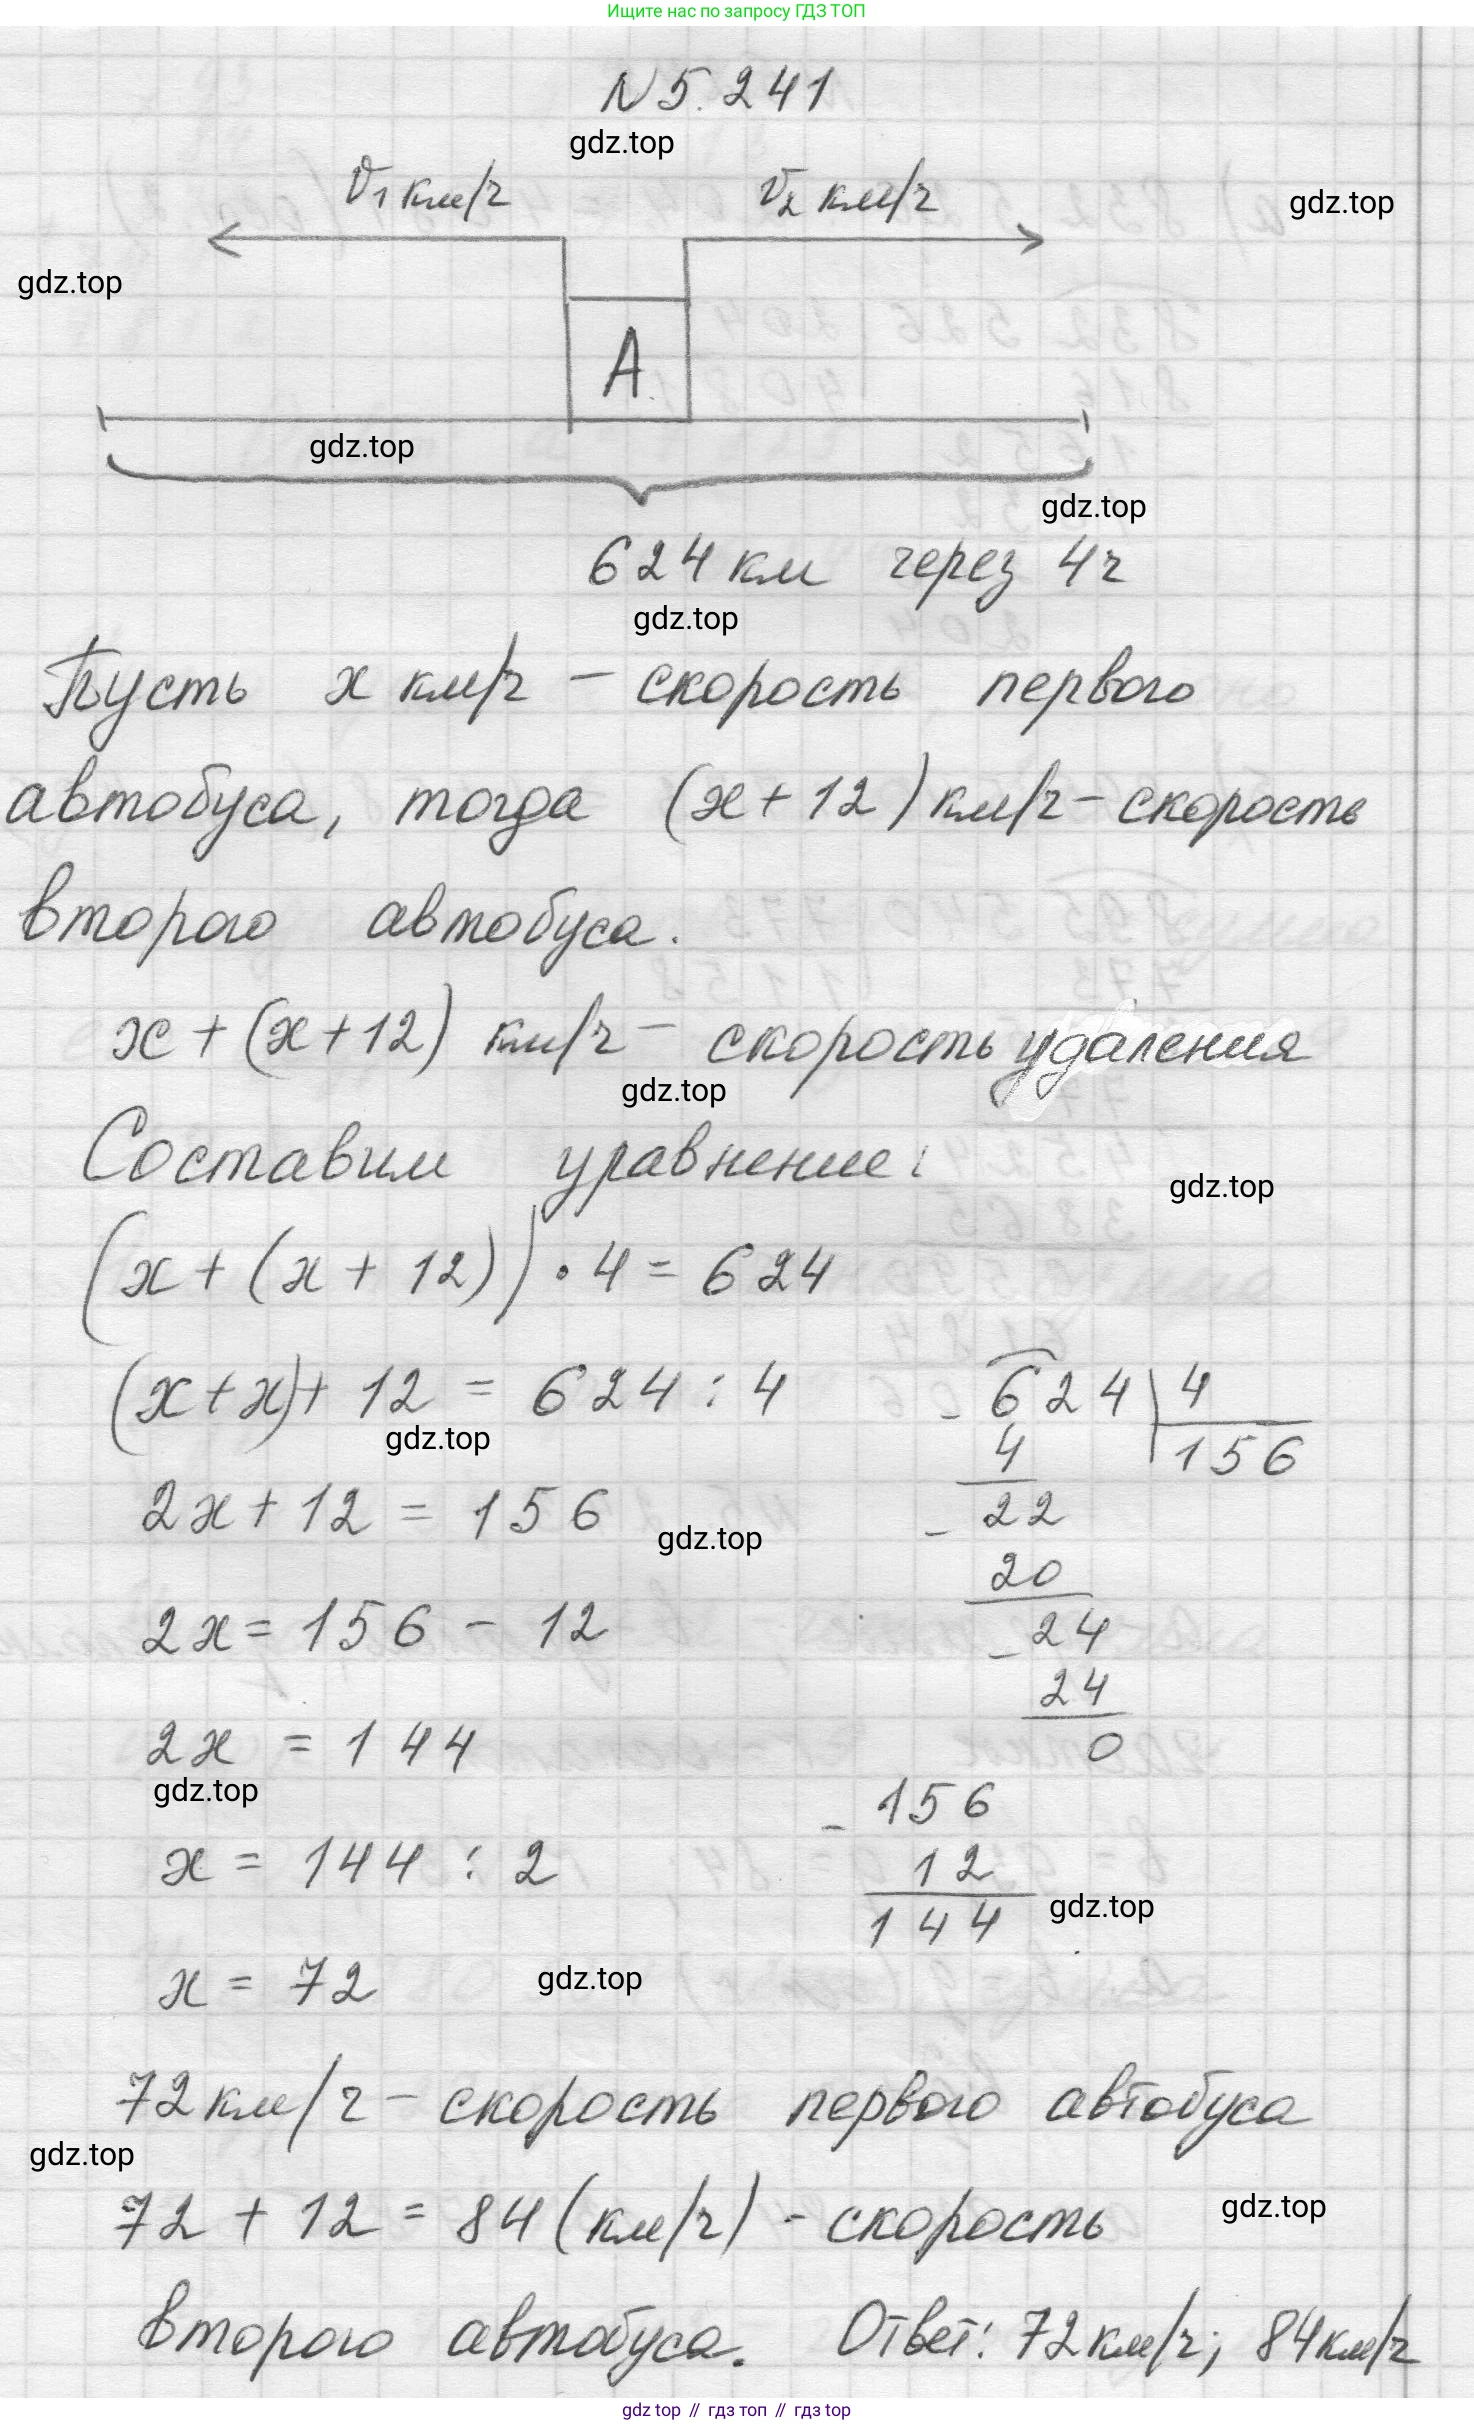 Ищите нас по запросу ГДЗ ТОП
N 5.241
gdz.top
v₁ км/ч v₂ км/ч
gdz.top
gdz.top
A
gdz.top
gdz.top
624 км через 4ч
gdz.top
Пусть x км/ч – скорость первого
автобуса, тогда (x + 12) км/ч – скорость
второго автобуса.
x + (x + 12) км/ч – скорость удаления
gdz.top
Составим уравнение:
gdz.top
(x + (x + 12)) · 4 = 624
(x + x) + 12 = 624 : 4
gdz.top
2x + 12 = 156
gdz.top
2x = 156 – 12
2x = 144
gdz.top
x = 144 : 2
x = 72
gdz.top
– 624 | 4
4 156
– 22
20
– 24
24
0
– 156
12
144
gdz.top
72 км/ч – скорость первого автобуса
gdz.top
72 + 12 = 84 (км/ч) – скорость
gdz.top
второго автобуса. Ответ: 72 км/ч; 84 км/ч
gdz top // гдз топ // гдз top